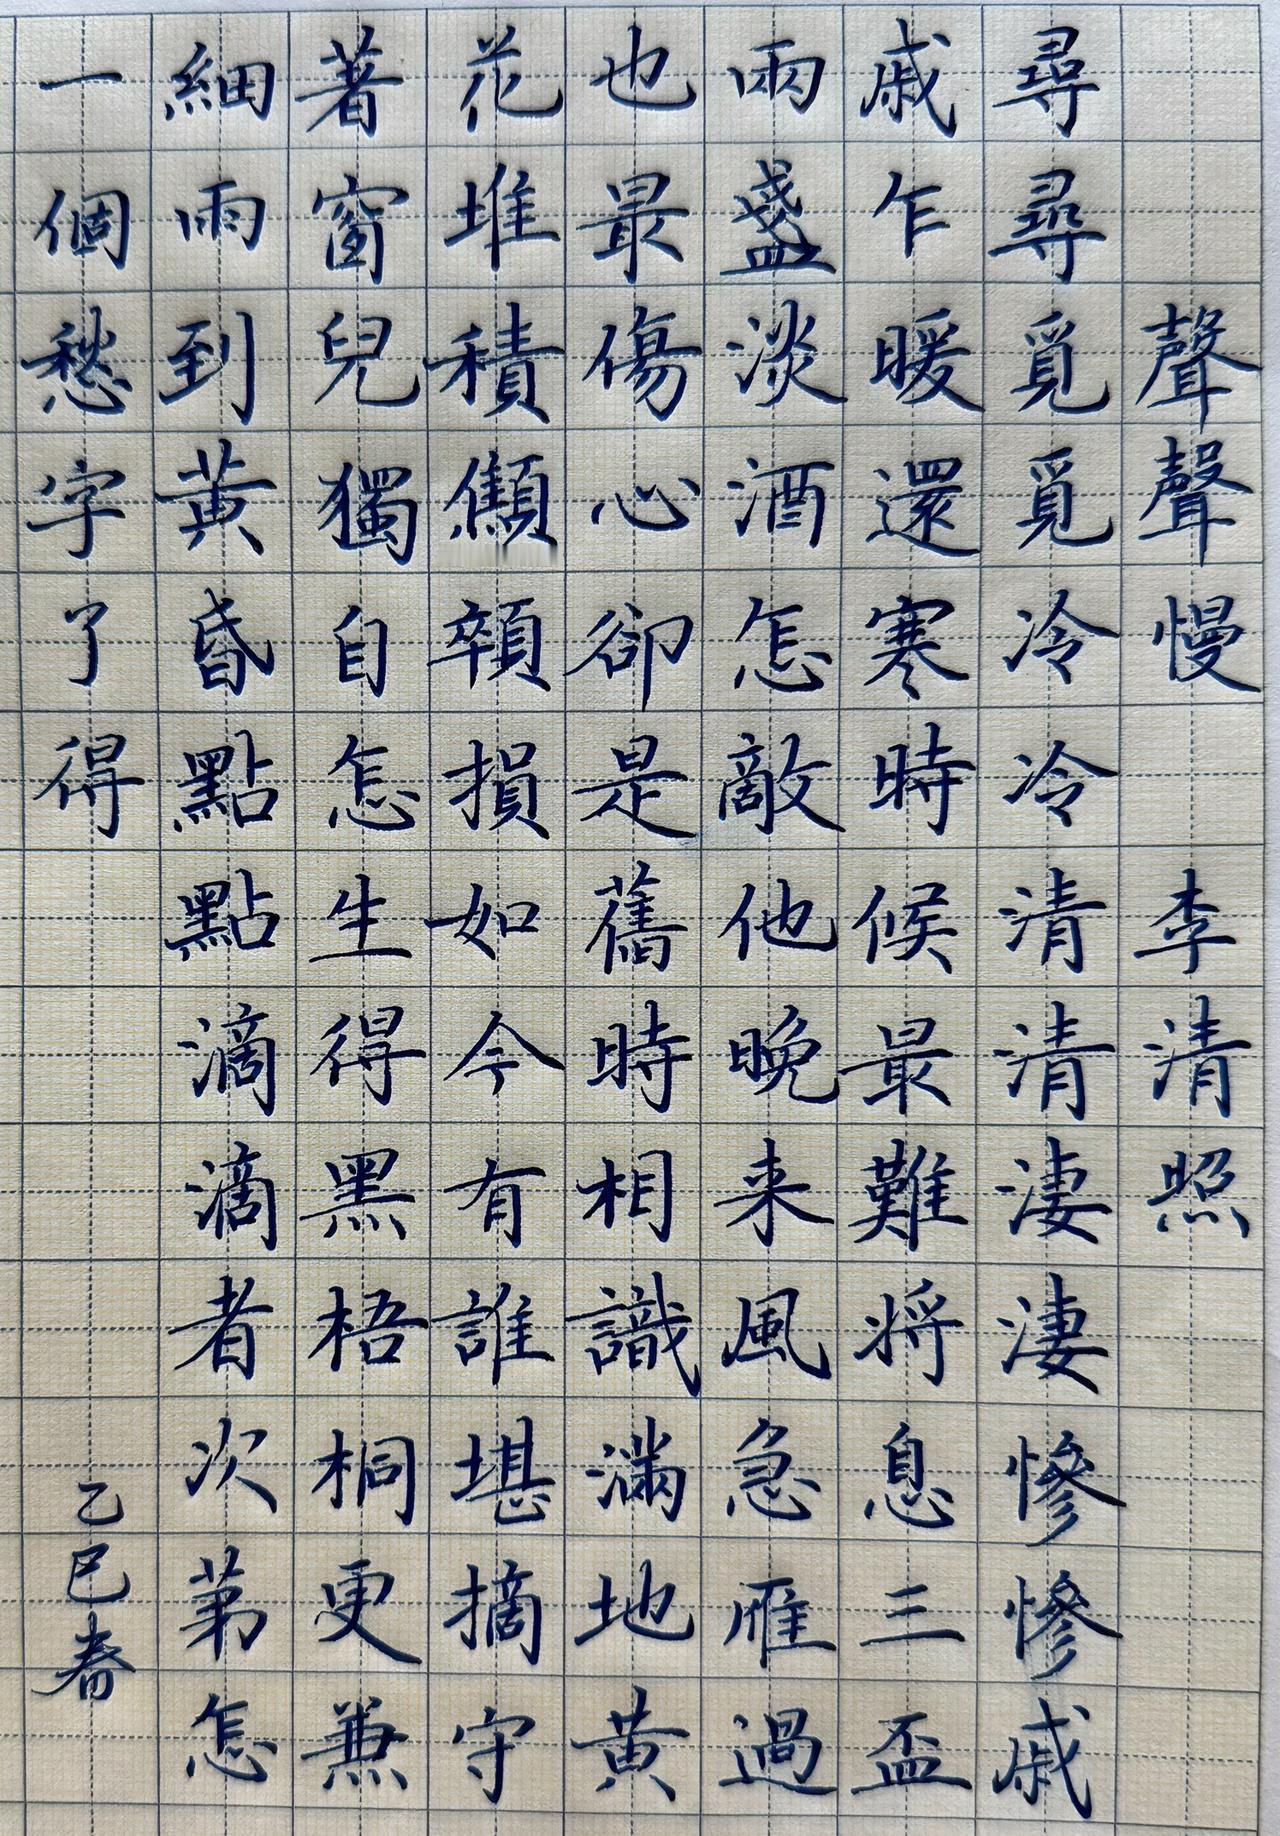 聲聲慢 李清照
尋尋覓覓冷冷清清淒淒慘慘戚
戚乍暖還寒時候最難将息三盃
兩盞淡酒怎敵他晚来風急雁過
也最傷心卻是舊時相識滿地黄
花堆積顦顇損如今有誰堪摘守
著窗兒獨自怎生得黑梧桐更兼
細雨到黄昏點點滴滴者次第怎
一個愁字了得
乙巳春